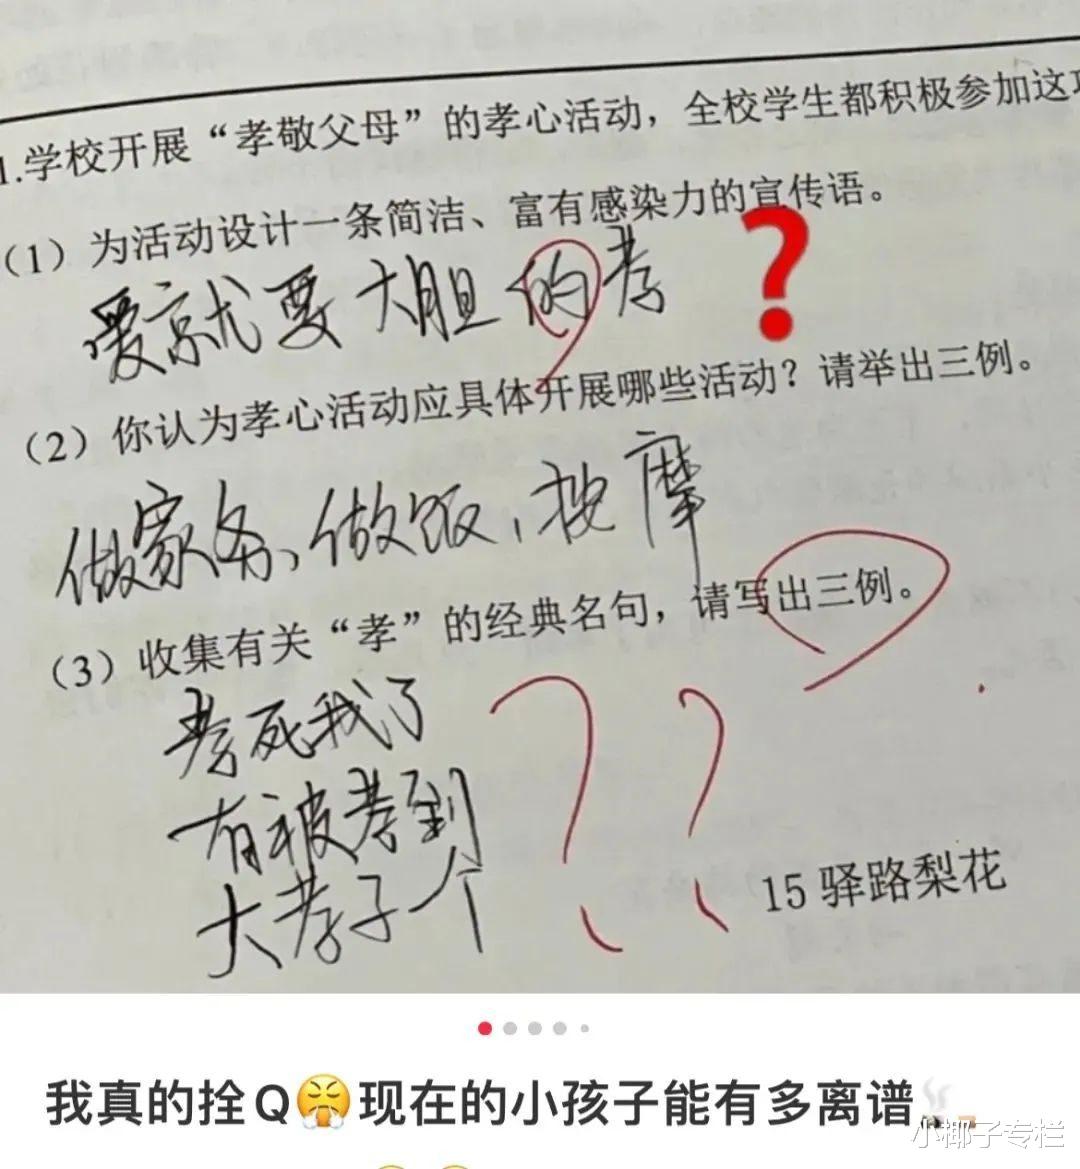 1.学校开展“孝敬父母”的孝心活动，全校学生都积极参加这
（1）为活动设计一条简洁、富有感染力的宣传语。
爱就要大胆的孝
？
（2）你认为孝心活动应具体开展哪些活动？请举出三例。
做家务、做饭，按摩
（3）收集有关“孝”的经典名句，请写出三例。
孝死我了
有被孝到
大孝子一个
？？
15 驿路梨花
我真的拴Q😤现在的小孩子能有多离谱
小椰子专栏